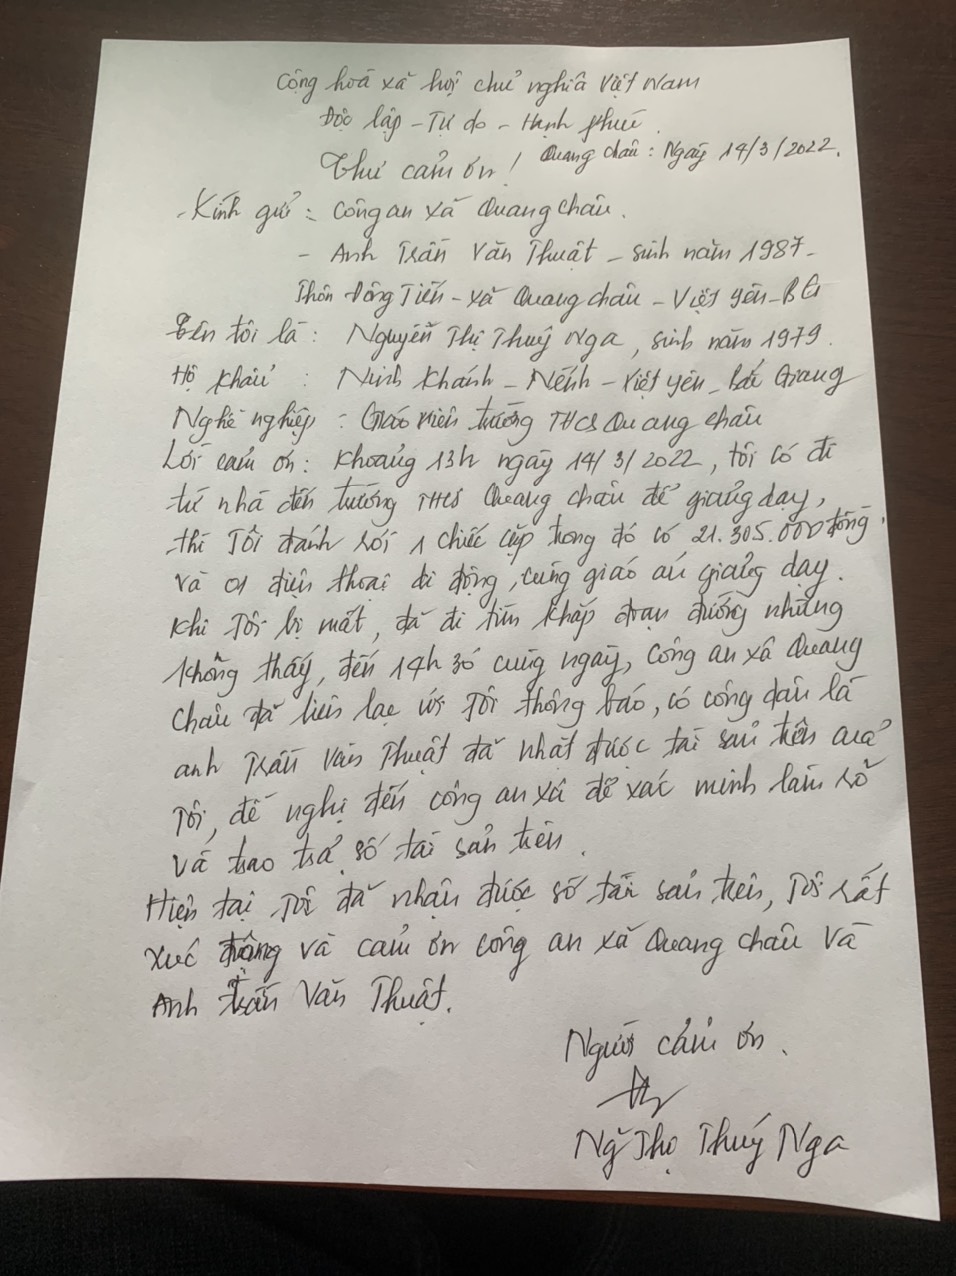 Cộng hoà xã hội chủ nghĩa Việt Nam
Độc lập - Tự do - Hạnh phúc.
Quang Châu: Ngày 14/3/2022.
Thư cảm ơn!
- Kính gửi: Công an xã Quang Châu.
- Anh Trần Văn Thuật - sinh năm 1987-
Thôn Đông Tiến - xã Quang Châu - Việt Yên - BG
Tên tôi là: Nguyễn Thị Thuý Nga, sinh năm 1979.
Hộ khẩu: Ninh Khánh - Nếnh - Việt Yên - Bắc Giang
Nghề nghiệp: Giáo viên trường THCS Quang Châu
Lời cảm ơn: Khoảng 13h ngày 14/3/2022, tôi có đi
từ nhà đến trường THCS Quang Châu để giảng dạy,
thì Tôi đánh rơi 1 chiếc cặp trong đó có 21.305.000 đồng
và 01 điện thoại di động, cùng giáo án giảng dạy.
Khi Tôi bị mất, đã đi tìm khắp đoạn đường nhưng
không thấy, đến 14h30 cùng ngày, Công an xã Quang
Châu đã liên lạc với Tôi thông báo, có công dân là
anh Trần Văn Thuật đã nhặt được tài sản trên của
Tôi, đề nghị đến công an xã để xác minh làm rõ
và trao trả số tài sản trên.
Hiện tại Tôi đã nhận được số tài sản trên, Tôi rất
xúc động và cảm ơn công an xã Quang Châu và
Anh Trần Văn Thuật.
Người cảm ơn.
Ng̃ Thị Thuý Nga